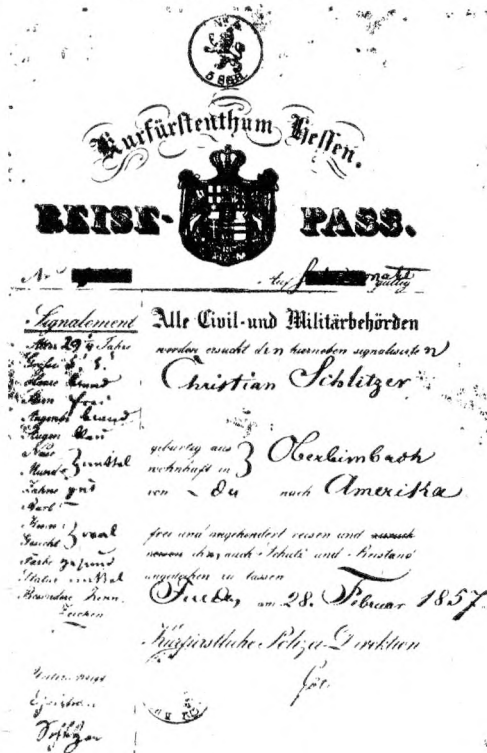 Kurfürstenthum Hessen.
REISE-PASS.
Nr
Auf gültig
Signalement
Alter 29 1/4 Jahre
Größe 5' 5"
Haare blond
Stirn frei
Augenbr blond
Augen blau
Nase
Mund mittel
Zähne gut
Bart
Kinn
Gesicht oval
Farbe gesund
Statur mittel
Besondere Kenn-
Zeichen
Alle Civil- und Militärbehörden
werden ersucht den hierneben signalisirten
Christian Schlitzer
gebürtig aus
wohnhaft in Oberbimbach
von - da nach Amerika
frei und ungehindert reisen und
auch Schutz und Beistand
angedeihen zu lassen
Fulda, am 28. Februar 1857
Kurfürstliche Polizei-Direktion
Christian
Schlitzer